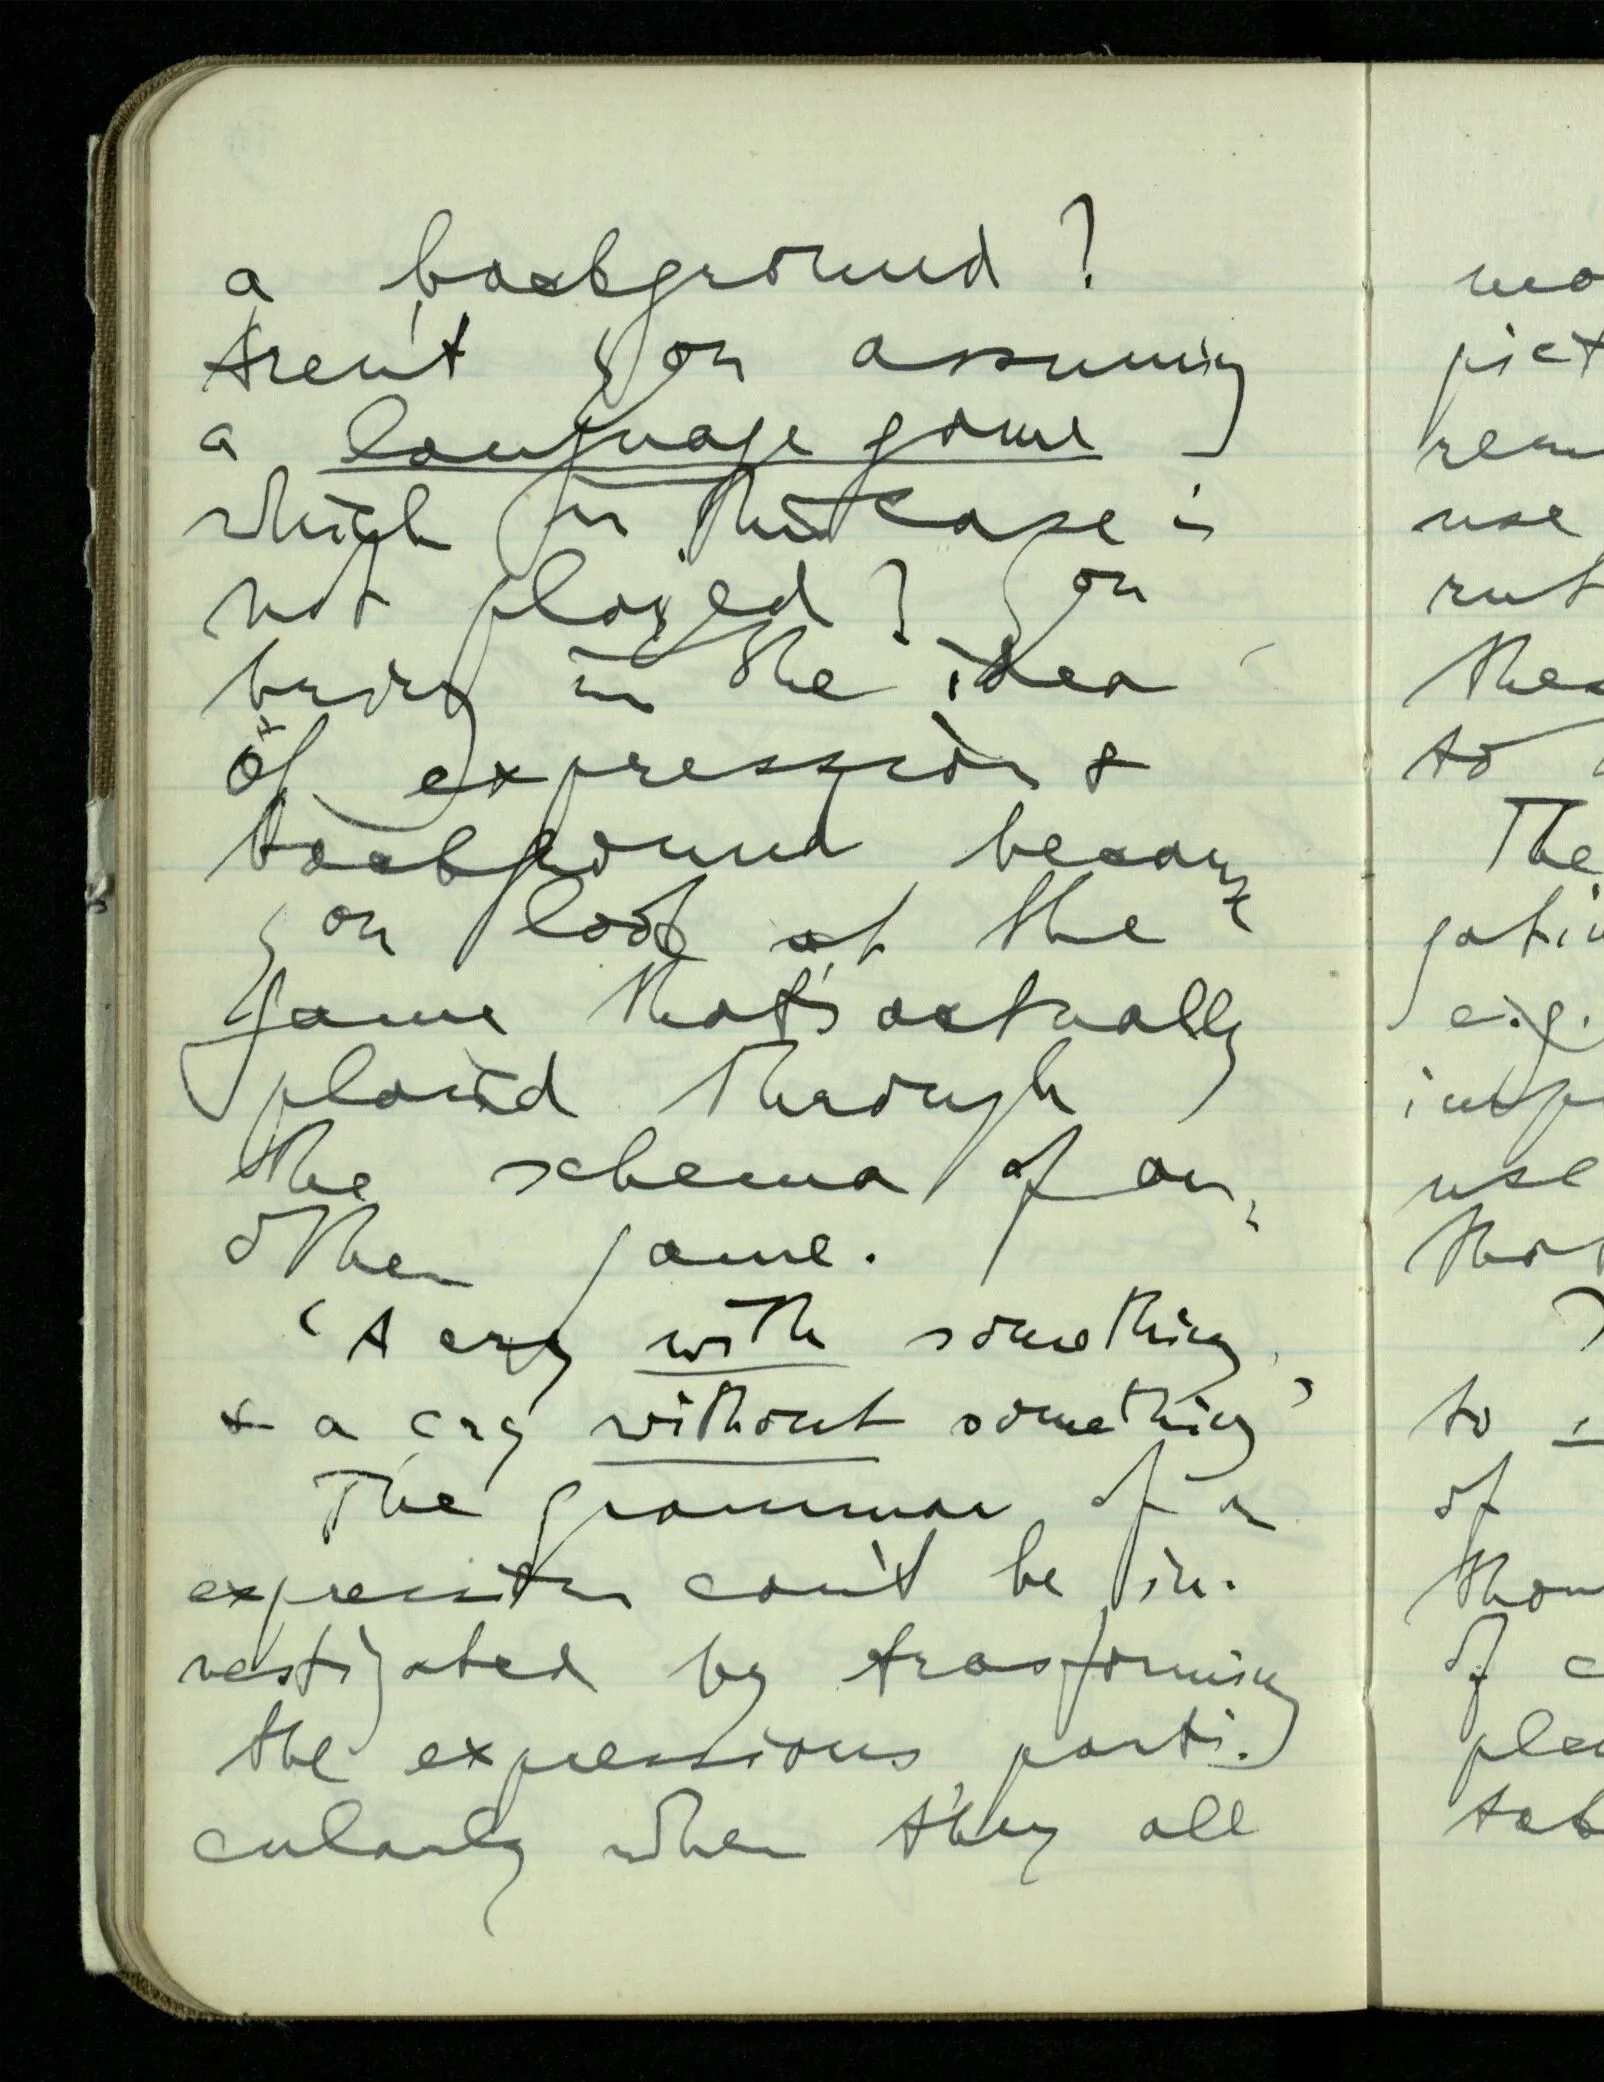 a background?
Aren't you assuming
a language game
which in this case is
not played? You
bring in the idea
of expression &
background because
you look at the
game that's actually
played through
the schema of an-
other game.
'A cry with something
& a cry without something'
The grammar of an
expression can't be in-
vestigated by trasforming
the expressions parti-
cularly when they all
pict
use
to
The
e.g.
use
to
of
of